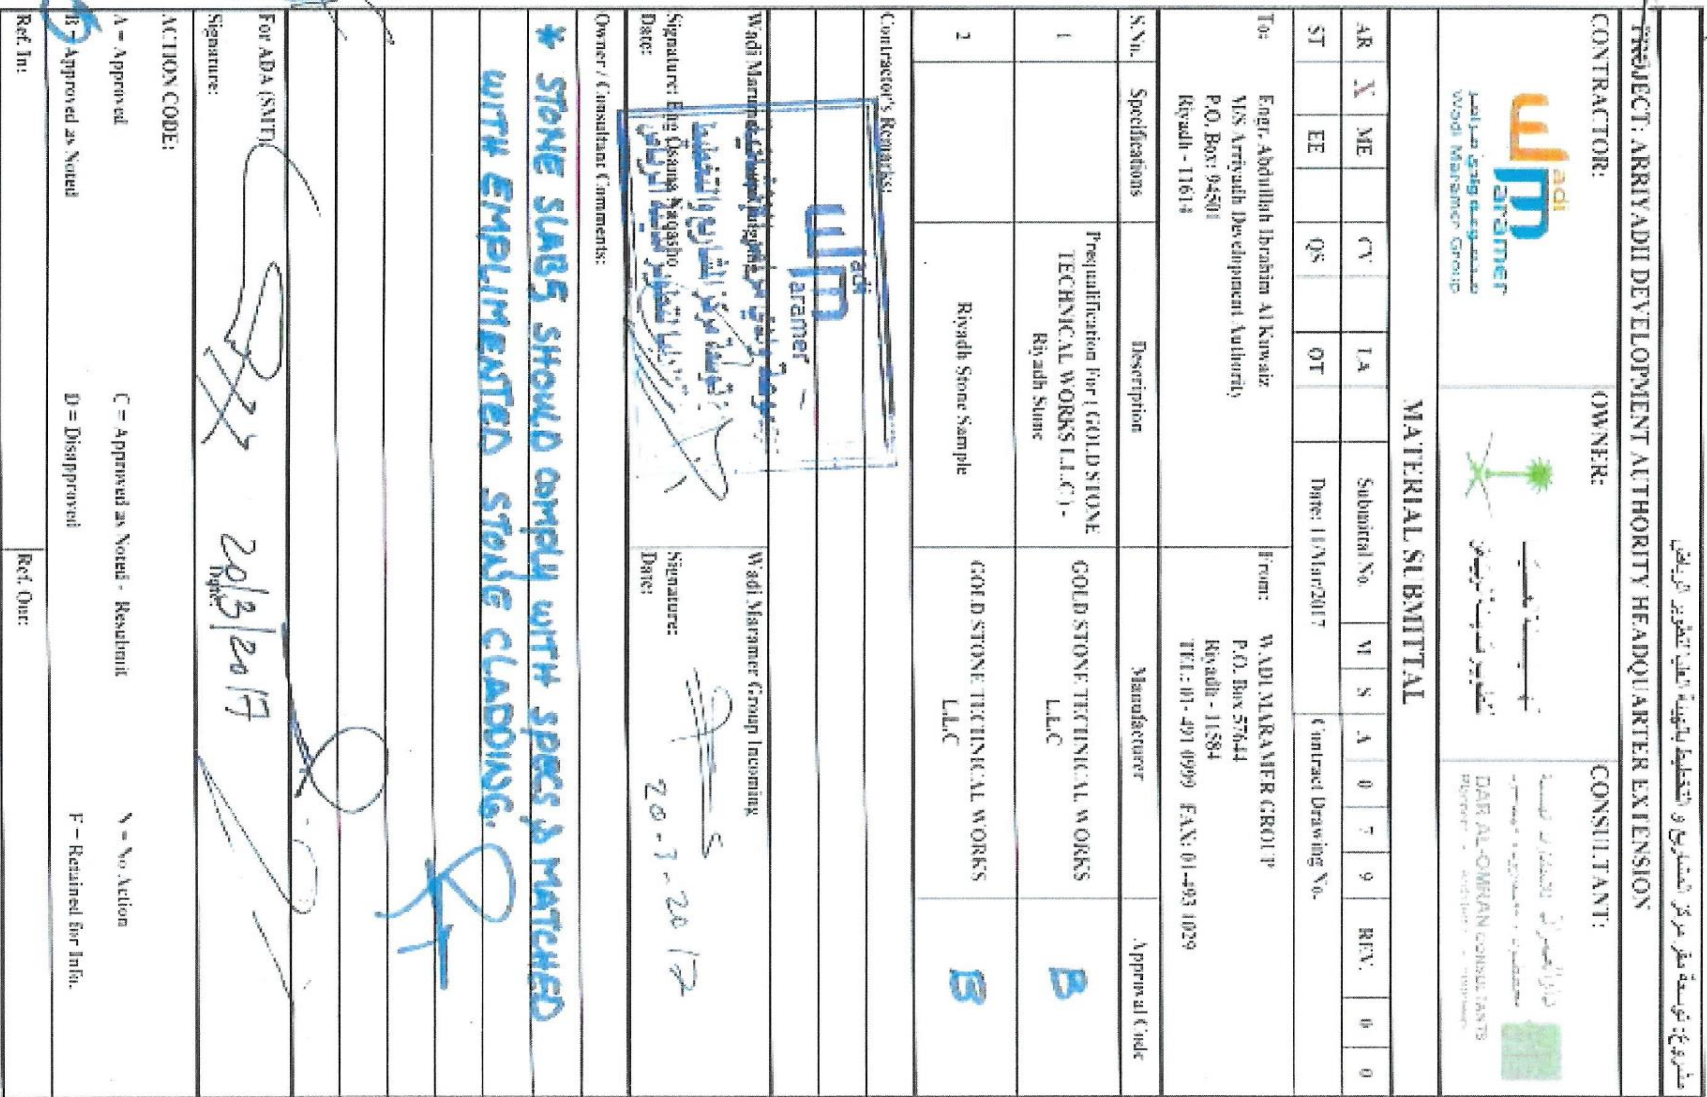 مشروع: توسعة مقر مركز المشاريع و التخطيط بالهيئة العليا لتطوير الرياض
PROJECT: ARRIYADI DEVELOPMENT AUTHORITY HEADQUARTER EXTENSION
CONTRACTOR: OWNER: CONSULTANT:
Wadi
Maramer
مجموعة وادي مرامر
Wadi Maramer Group
DAR AL-OMRAN CONSULTANTS
MATERIAL SUBMITTAL
AR X ME CV LA Submittal No. M S A 0 7 9 REV. 0 0
ST EE QS OT Date: 11/Mar/2017 Contract Drawing No.
To: Engr. Abdullah Ibrahim Al Kuwaiz
M/S Arriyadh Development Authority
P.O. Box: 94501
Riyadh - 11614
From: WADI MARAMER GROUP
P.O. Box 57644
Riyadh - 11584
TEL: 01- 491 0999 FAX: 01-493 1029
S.No. Specifications Description Manufacturer Approval Code
1 Prequalification For ( GOLD STONE TECHNICAL WORKS L.L.C ) - Riyadh Stone GOLD STONE TECTINICAL WORKS L.L.C B
2 Riyadh Stone Sample GOLD STONE TECTINICAL WORKS L.L.C B
Contractor's Remarks:
Wadi
Maramer
Wadi Maramer
Signature: Eng Osama Naqasho
Date:
Wadi Maramer Group Incoming
Signature:
Date: 20-3-2017
Owner / Consultant Comments:
* STONE SLABS SHOULD COMPLY WITH SPECS & MATCHED
WITH EMPLIMENTED STONE CLADDING.
For ADA (SMT)
Signature: Date: 20/3/2017
ACTION CODE:
A = Approved C = Approved as Noted - Resubmit N = No Action
B = Approved as Noted D = Disapproved F = Retained for Info.
Ref. In: Ref. Out: